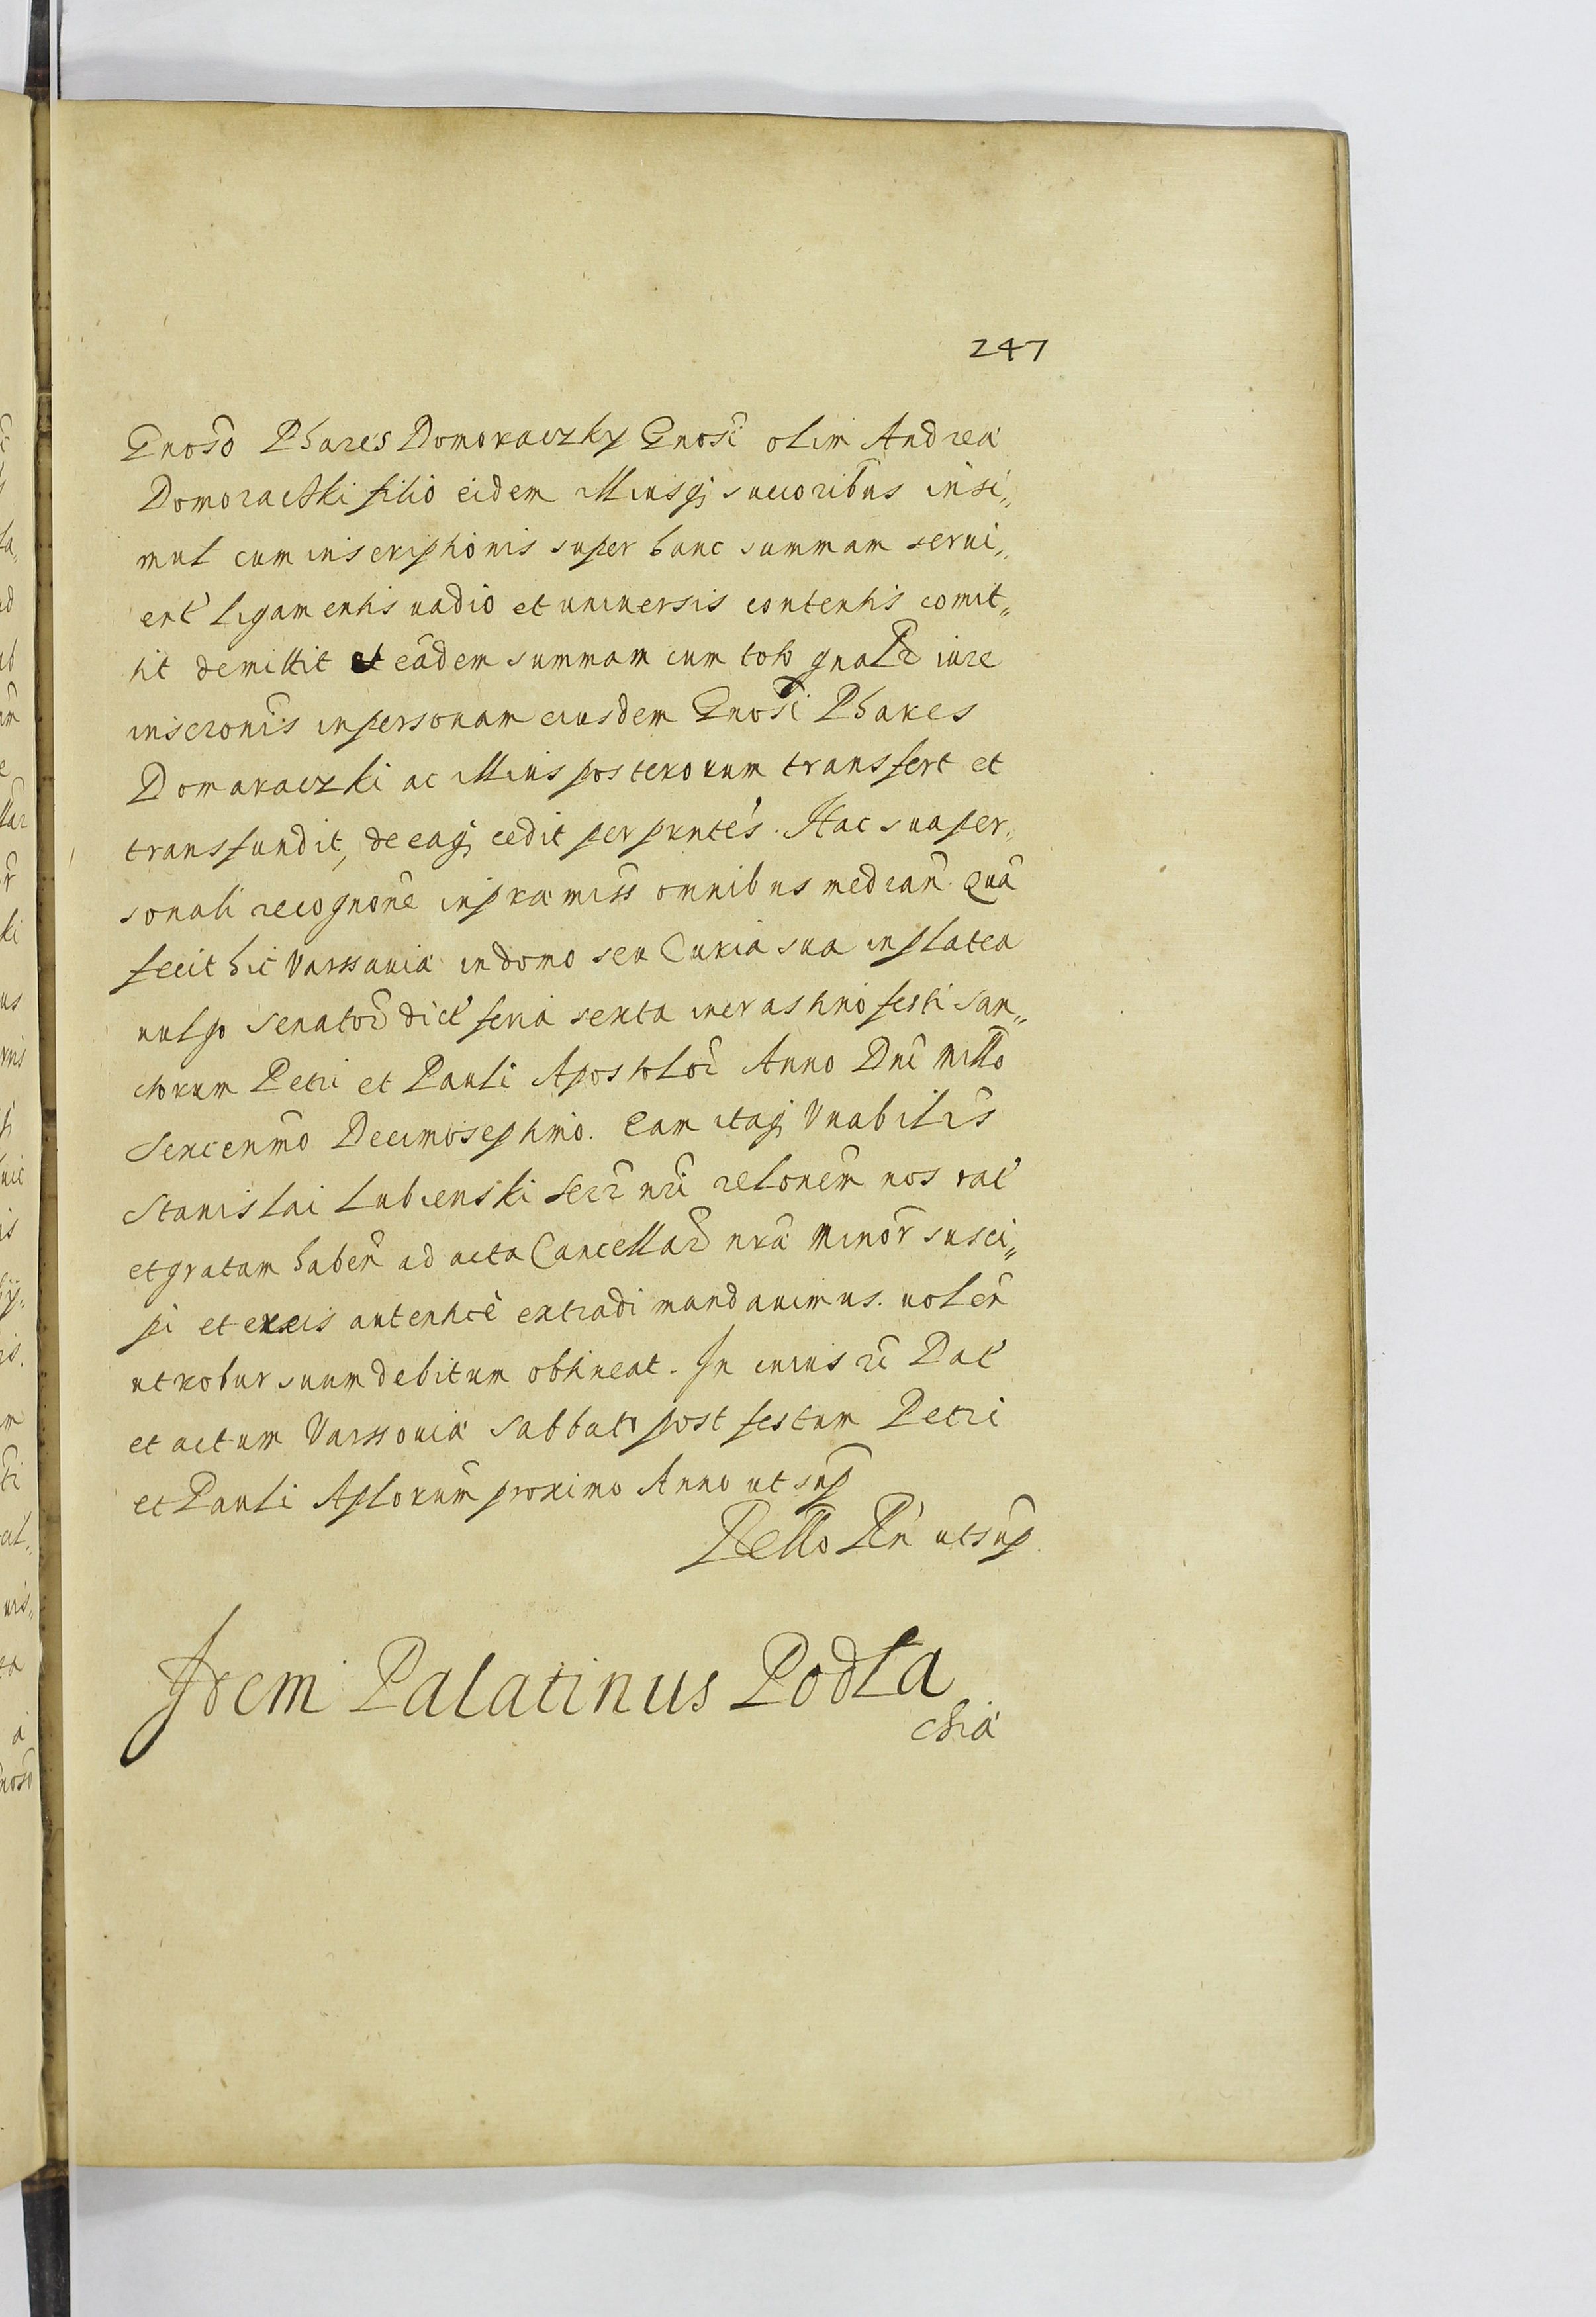 247
Gnoso Phares Domoraczky Gnosi olim Andreæ
Domoraczki filio eidem illiusq; successoribus insi„
mul cum inscriptionis super hanc summam serui„
ent ligamentis uadio et uniuersis contentis comit„
tit demittit et eadem summam cum toto gnali iure
inscronis in personam eiusdem Gnosi Phares
Domaraczki ac illius posterorum transfert et
transfundit, de eaq; cedit per pnntes. Hac sua per„
sonali recognone in præmiss omnibus median. Quã
fecit hic Varssauiæ in domo seu Curia sua in platea
uulgo Senator dict feria sexta in crastino festi San„
ctorum Petri et Pauli Apostolor Anno Dni Millo
Sexcenmo Decimoseptimo. Eam itaq; Vnabilis
Stanislai Lubienski Secr nri relonem nos rat
et gratam haben ad acta Cancellar nræ Minor susci„
pi et ex eis autentice extradi mandauimus. uolen
ut robur suum debitum obtineat. In cuius rei Dat
et actum Varssouiæ Sabbato post festum Petri
et Pauli Aplorum proximo Anno ut sup
Rello Eiu utsup.
Idem Palatinus Podla
chiæ